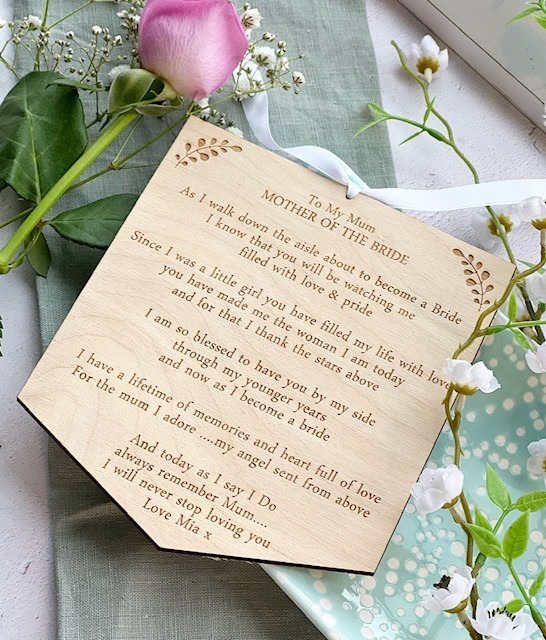 To My Mum
MOTHER OF THE BRIDE
As I walk down the aisle about to become a Bride
I know that you will be watching me
filled with love & pride
Since I was a little girl you have filled my life with love
you have made me the woman I am today
and for that I thank the stars above
I am so blessed to have you by my side
through my younger years
and now as I become a bride
I have a lifetime of memories and heart full of love
For the mum I adore ....my angel sent from above
And today as I say I Do
always remember Mum....
I will never stop loving you
Love Mia x